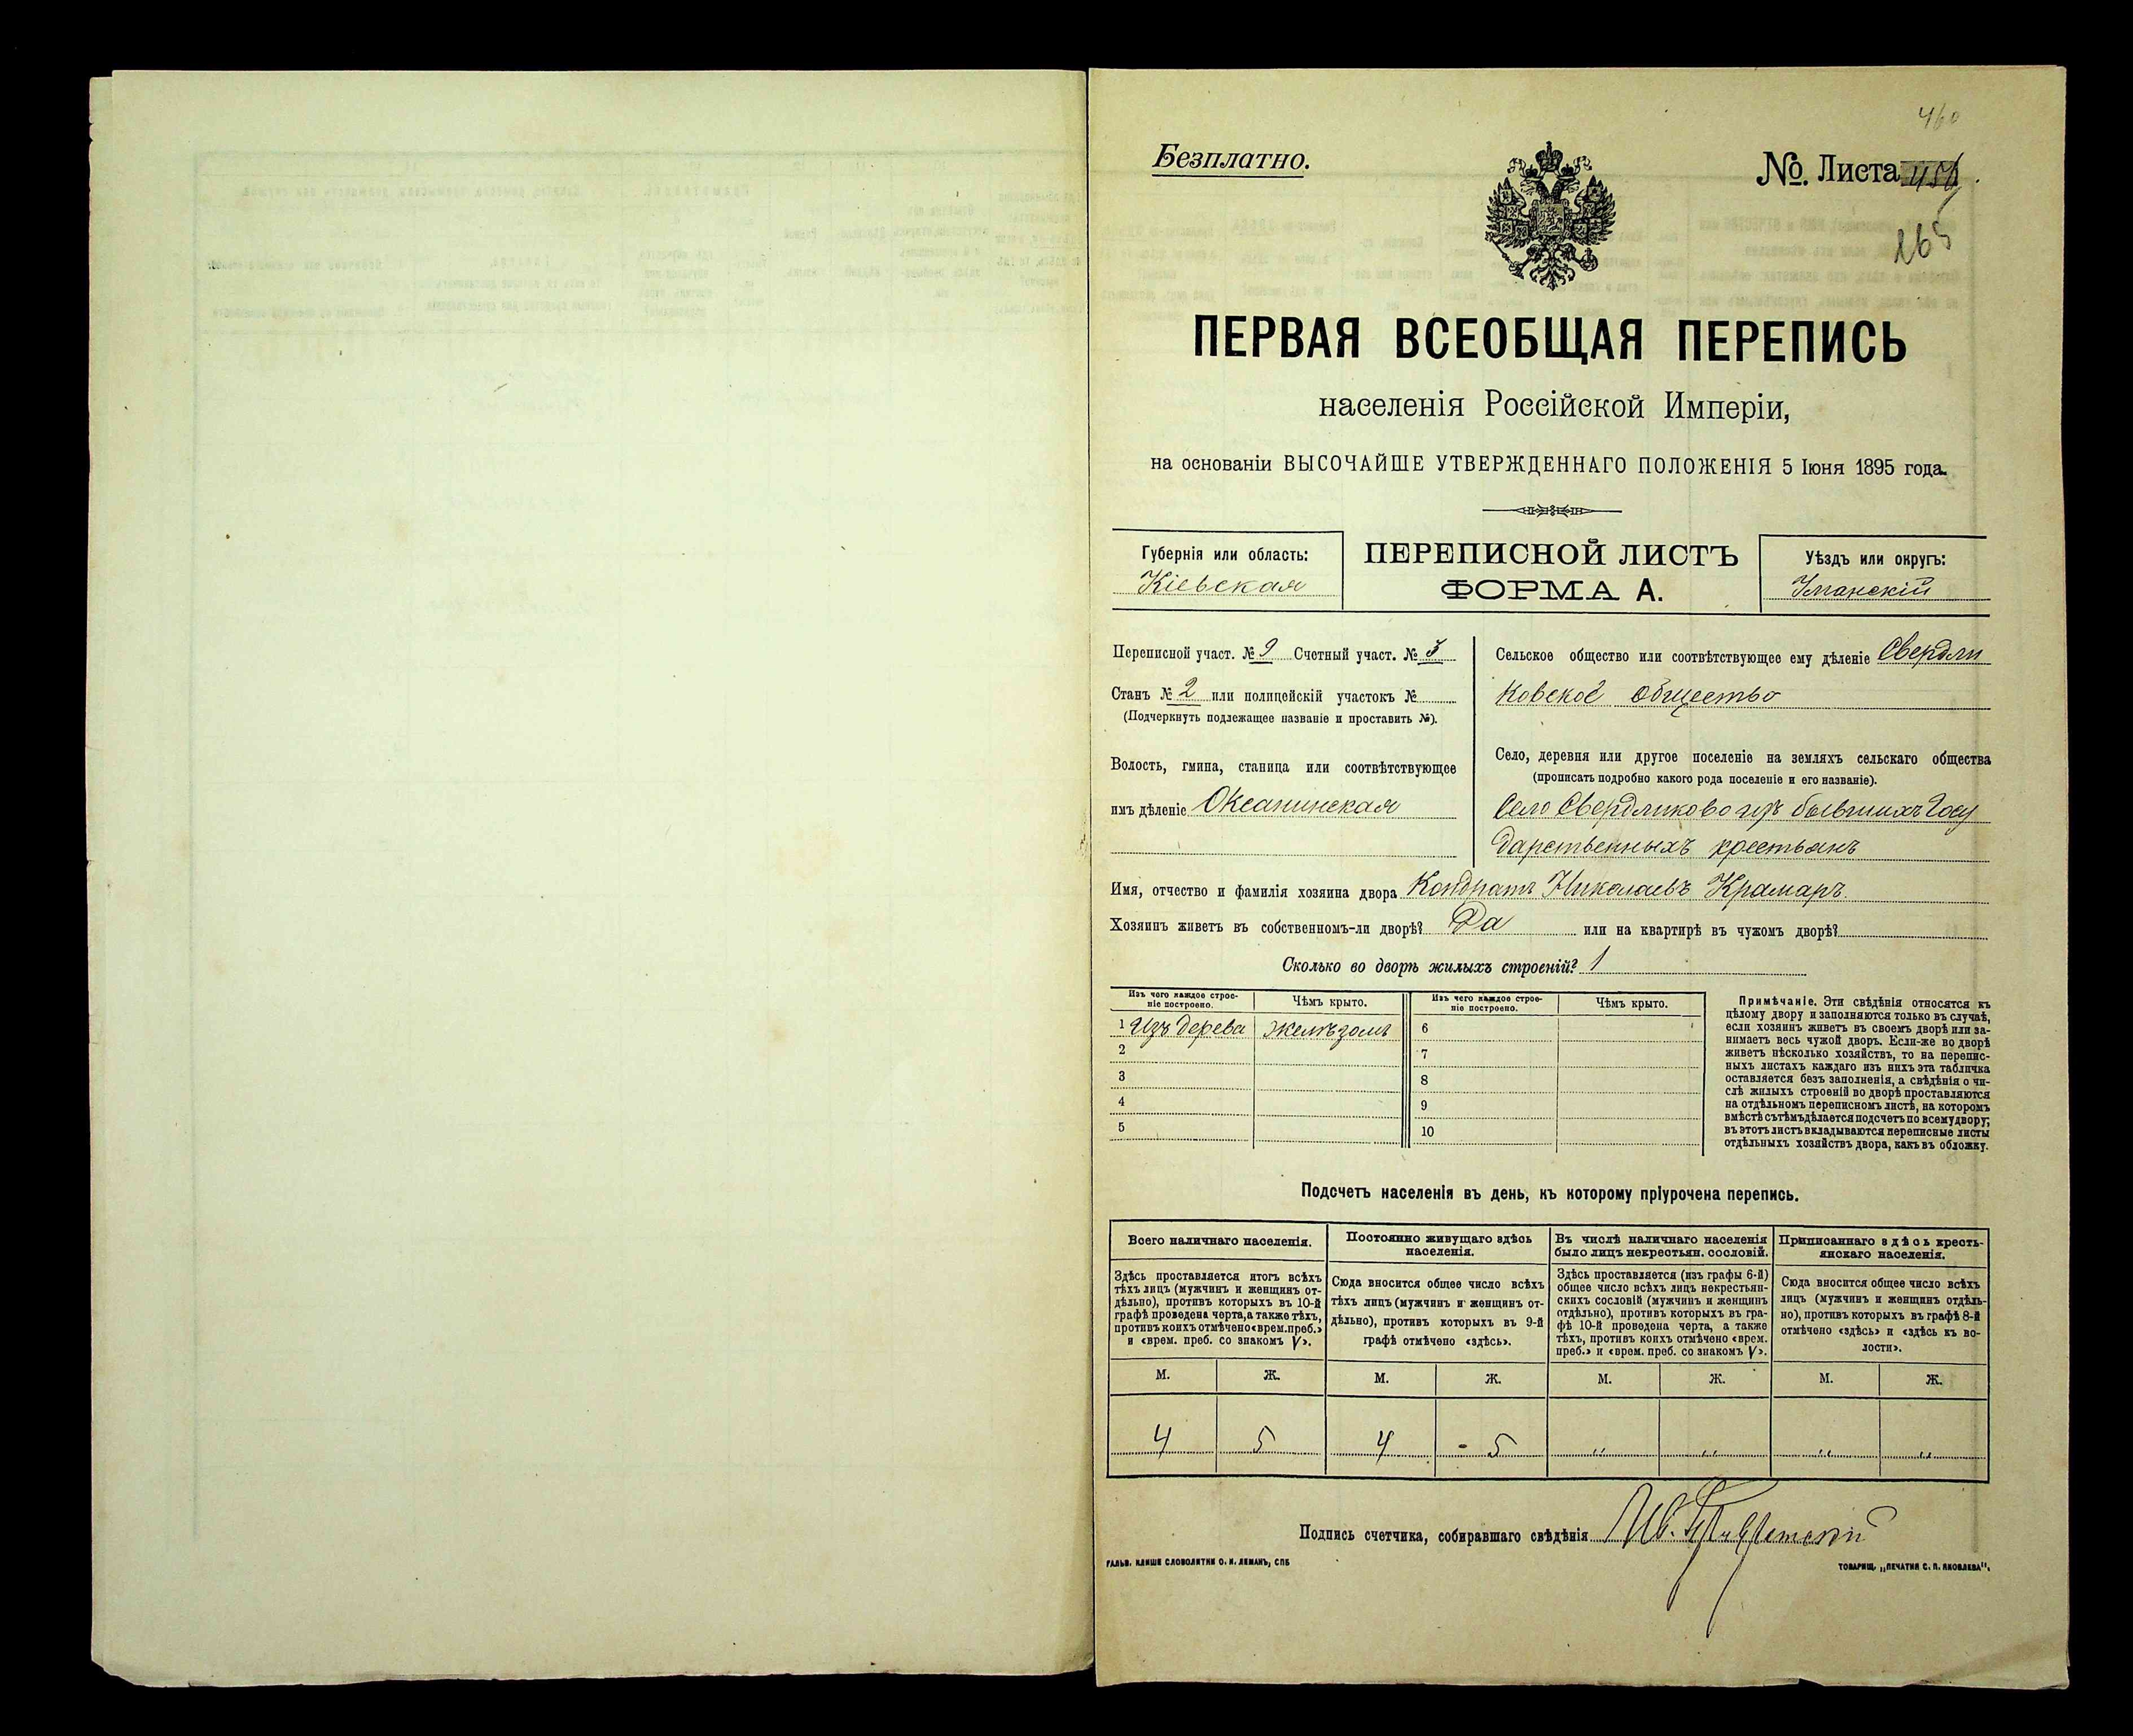 460
Безплатно.
№. Листа
265
ПЕРВАЯ ВСЕОБЩАЯ ПЕРЕПИСЬ
населенія Россійской Имперіи,
на основаніи ВЫСОЧАЙШЕ УТВЕРЖДЕННАГО ПОЛОЖЕНІЯ 5 Іюня 1895 года.
Губернія или область:
Кіевская
ПЕРЕПИСНОЙ ЛИСТЪ
ФОРМА А.
Уѣздъ или округъ:
Уманскій
Переписной участ. № 9 Счетный участ. № 3
Станъ № 2 или полицейскій участокъ №
(Подчеркнуть подлежащее названіе и проставить №).
Волость, гмина, станица или соотвѣтствующее
имъ дѣленіе Оксанинская
Сельское общество или соотвѣтствующее ему дѣленіе Свердли
ковское общество
Село, деревня или другое поселеніе на земляхъ сельскаго общества
(прописать подробно какого рода поселеніе и его названіе).
Село Свердликово изъ бывшихъ Госу
дарственныхъ крестьянъ
Имя, отчество и фамилія хозяина двора Кондратъ Николаевъ Крамаръ.
Хозяинъ живетъ въ собственномъ-ли дворѣ? Да или на квартирѣ въ чужомъ дворѣ?
Сколько во дворѣ жилыхъ строеній? 1
Изъ чего каждое строе-
ніе построено.
Чѣмъ крыто.
Изъ чего каждое строе-
ніе построено.
Чѣмъ крыто.
1 Изъ дерева желѣзомъ 6
2 7
3 8
4 9
5 10
Примѣчаніе. Эти свѣдѣнія относятся къ
цѣлому двору и заполняются только въ случаѣ,
если хозяинъ живетъ въ своемъ дворѣ или за-
нимаетъ весь чужой дворъ. Если-же во дворѣ
живетъ нѣсколько хозяйствъ, то на перепис-
ныхъ листахъ каждаго изъ нихъ эта табличка
оставляется безъ заполненія, а свѣдѣнія о чи-
слѣ жилыхъ строеній во дворѣ проставляются
на отдѣльномъ переписномъ листѣ, на которомъ
вмѣстѣ съ тѣмъ дѣлается подсчетъ по всему двору;
въ этотъ листъ вкладываются переписные листы
отдѣльныхъ хозяйствъ двора, какъ въ обложку.
Подсчетъ населенія въ день, къ которому пріурочена перепись.
Всего наличнаго населенія.
Здѣсь проставляется итогъ всѣхъ
тѣхъ лицъ (мужчинъ и женщинъ от-
дѣльно), противъ которыхъ въ 10-й
графѣ проведена черта, а также тѣхъ,
противъ коихъ отмѣчено «врем. преб.»
и «врем. преб. со знакомъ V».
Постоянно живущаго здѣсь
населенія.
Сюда вносится общее число всѣхъ
тѣхъ лицъ (мужчинъ и женщинъ от-
дѣльно), противъ которыхъ въ 9-й
графѣ отмѣчено «здѣсь».
Въ числѣ наличнаго населенія
было лицъ некрестьян. сословій.
Здѣсь проставляется (изъ графы 6-й)
общее число всѣхъ лицъ некрестьян-
скихъ сословій (мужчинъ и женщинъ
отдѣльно), противъ которыхъ въ гра-
фѣ 10-й проведена черта, а также
тѣхъ, противъ коихъ отмѣчено «врем.
преб.» и «врем. преб. со знакомъ V».
Приписаннаго здѣсь кресть-
янскаго населенія.
Сюда вносится общее число всѣхъ
лицъ (мужчинъ и женщинъ отдѣль-
но), противъ которыхъ въ графѣ 8-й
отмѣчено «здѣсь» и «здѣсь къ во-
лости».
М. Ж. М. Ж. М. Ж. М. Ж.
4 5 4 - 5 „ „ „ „
Подпись счетчика, собиравшаго свѣдѣнія
ГАЛЬВ. КЛИШЕ СЛОВОЛИТНИ О. И. ЛЕМАНЪ, СПБ
ТОВАРИЩ. „ПЕЧАТНЯ С. П. ЯКОВЛЕВА".